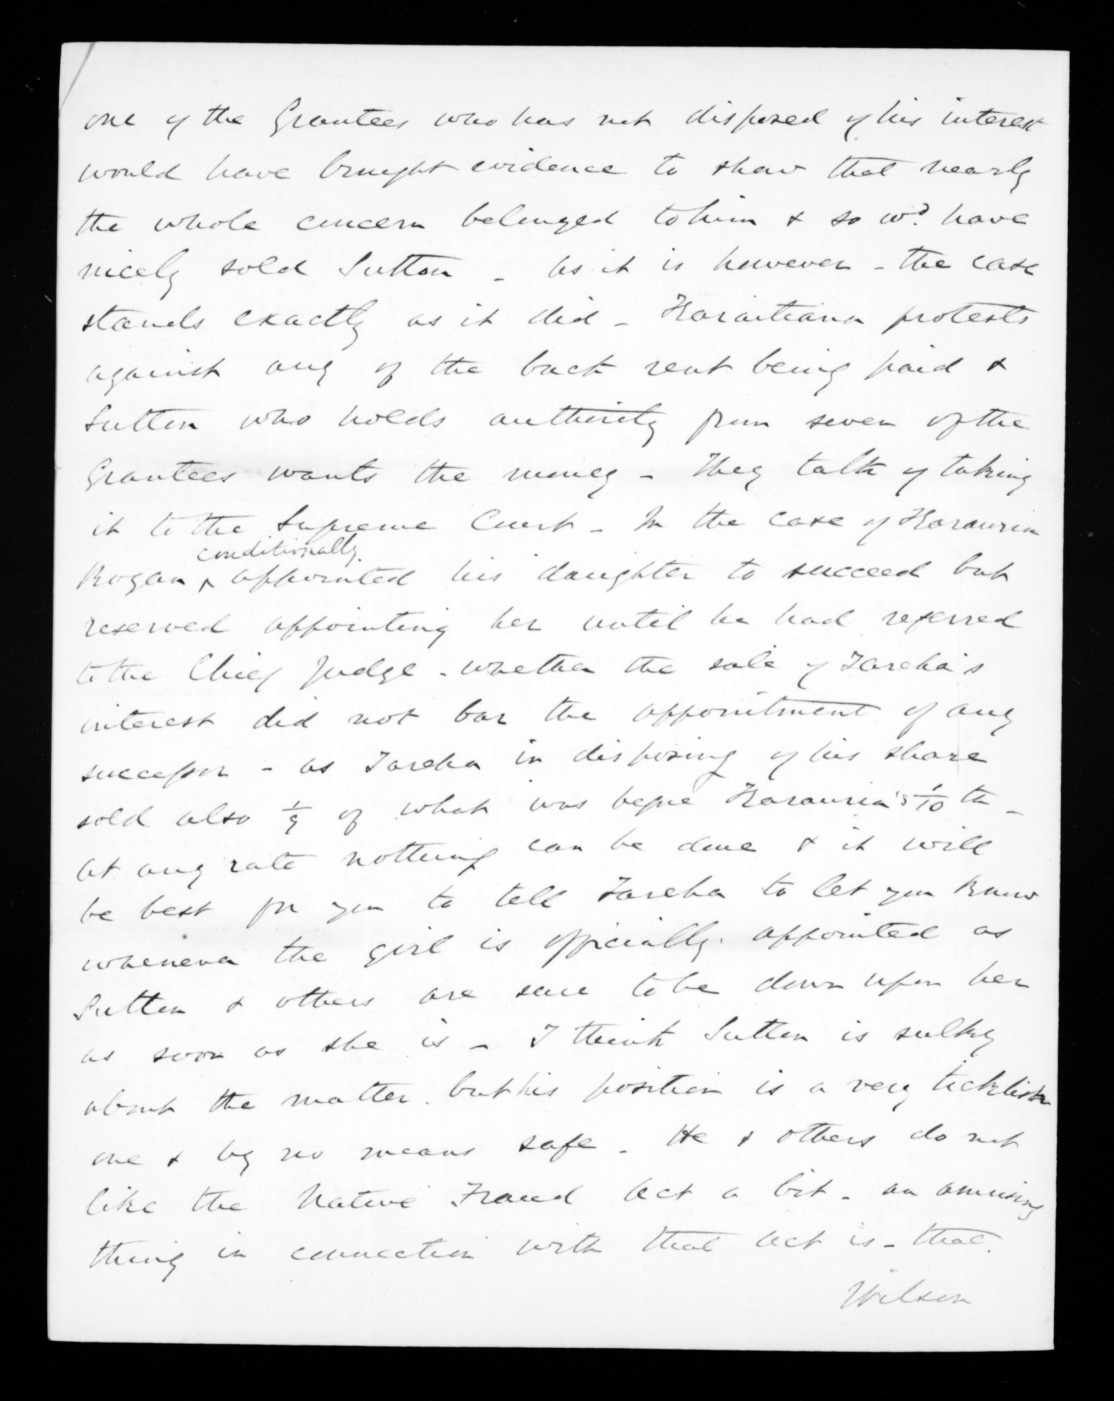 one of the Grantees who has not disposed of his interest
would have brought evidence to show that nearly
the whole concern belonged to him & so wd. have
nicely sold Sutton - As it is however - the case
stands exactly as it did - Karaitiana protests
against any of the back rent being paid &
Sutton who holds authority from seven of the
Grantees wants the money - They talk of taking
it to the Supreme Court - In the case of Karauria
conditionally
Rogan ^ appointed his daughter to succeed but
reserved appointing her until he had referred
to the Chief Judge - whether the sale of Tareha's
interest did not bar the appointment of any
successor - as Tareha in disposing of his share
sold also 1/9 of what was before Karauria's 1/10 th -
at any rate nothing can be done & it will
be best for you to tell Tareha to let you know
whenever the girl is officially appointed as
Sutton & others are sure to be down upon her
as soon as she is - I think Sutton is sulky
about the matter. but his position is a very ticklish
one & by no means safe - He & others do not
like the Native Fraud Act a bit - an amusing
thing in connection with that Act is - that.
Wilson